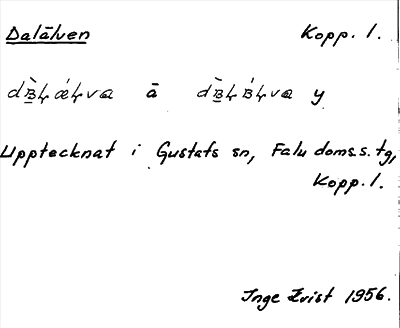 Dalälven Kopp. l.
dʙ̀ɭǽɭva ä dʙ̀ɭʙ́ɭva y
Upptecknat i Gustafs sn, Falu doms.s. tg,
Kopp. l.
Inge Kvist 1956.